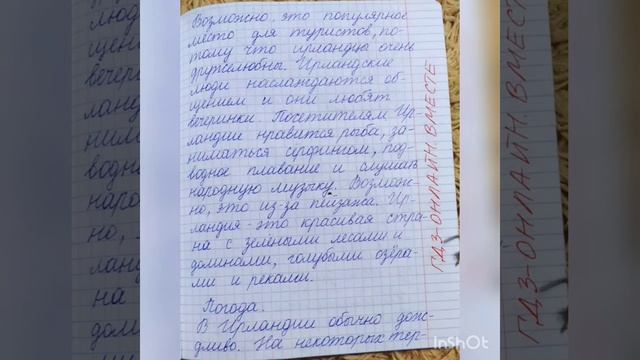 Возможно, это популярное
место для туристов, по-
тому что ирландцы очень
дружелюбны. Ирландские
люди наслаждаются об-
щением и они любят
вечеринки. Посетителям Ир-
ландие нравится рыба, за-
ниматься серфингом, под-
водное плавание и слушать
народную музыку. Возмож-
но, это из-за пейзажа. Ир-
ландия - это красивая стра-
на с зелёными лесами и
долинами, голубыми озёра-
ми и реками.
Погода.
В Ирландии обычно дож-
дливо. На некоторых тер-
ГДЗ-ОНЛАЙН. ВМЕСТЕ
InShOt